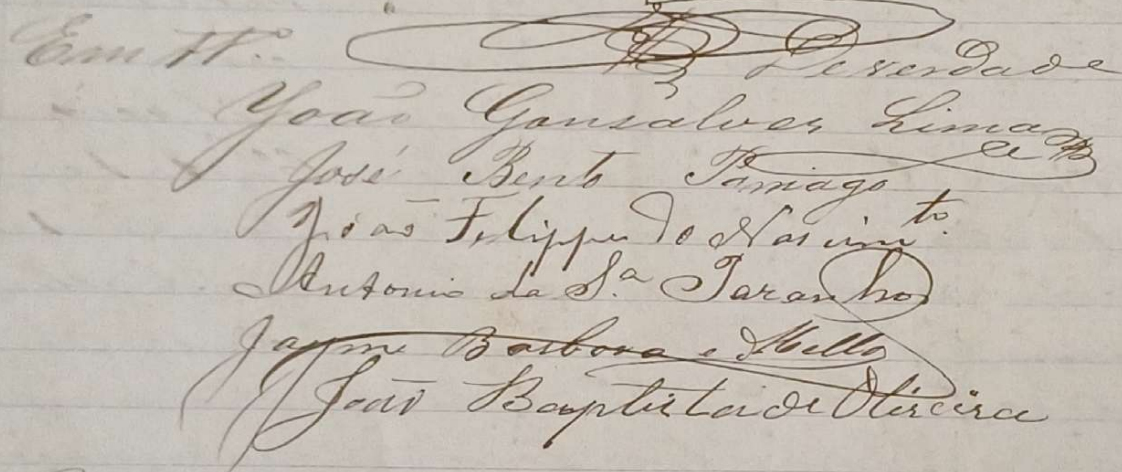 Em tt.º de verdade
João Gonsalves Lima
José Bento Paniago
João Filippe do Nascim.to
Antonio da S.ª Paranhos
Jayme Barbosa e Mello
João Baptista de Oliveira